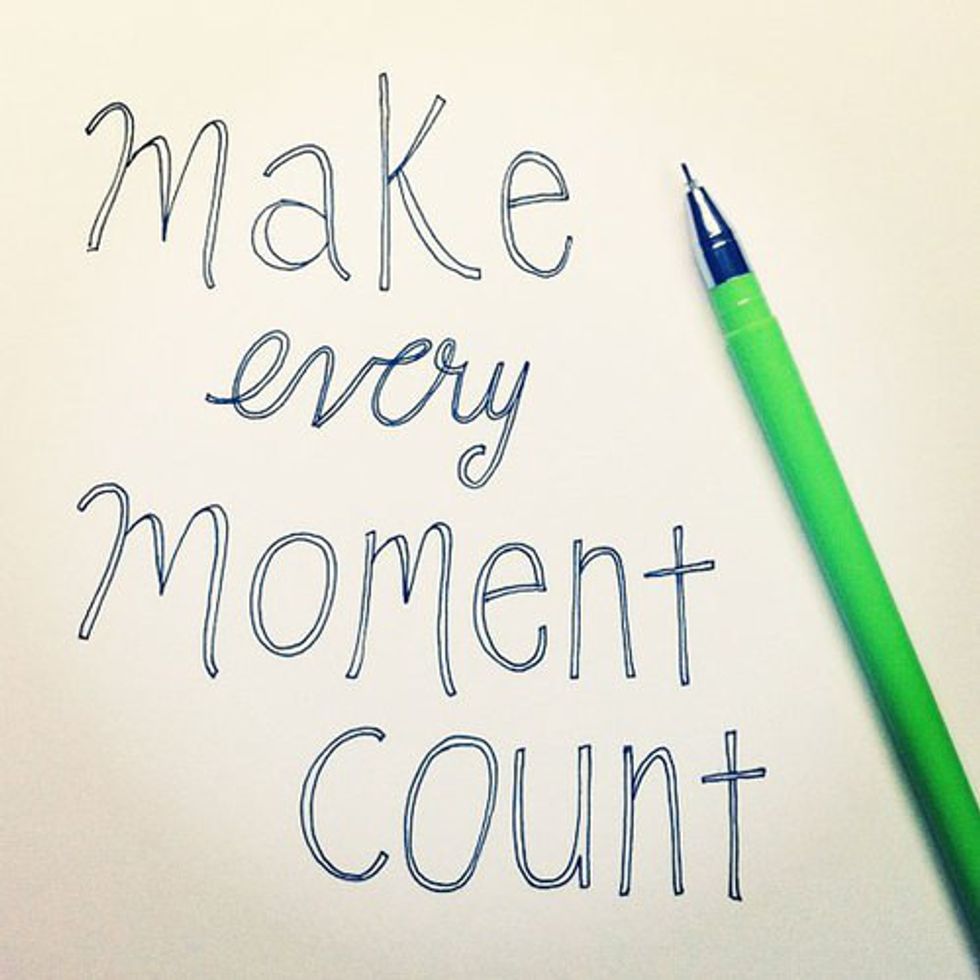 Make
every
Moment
Count